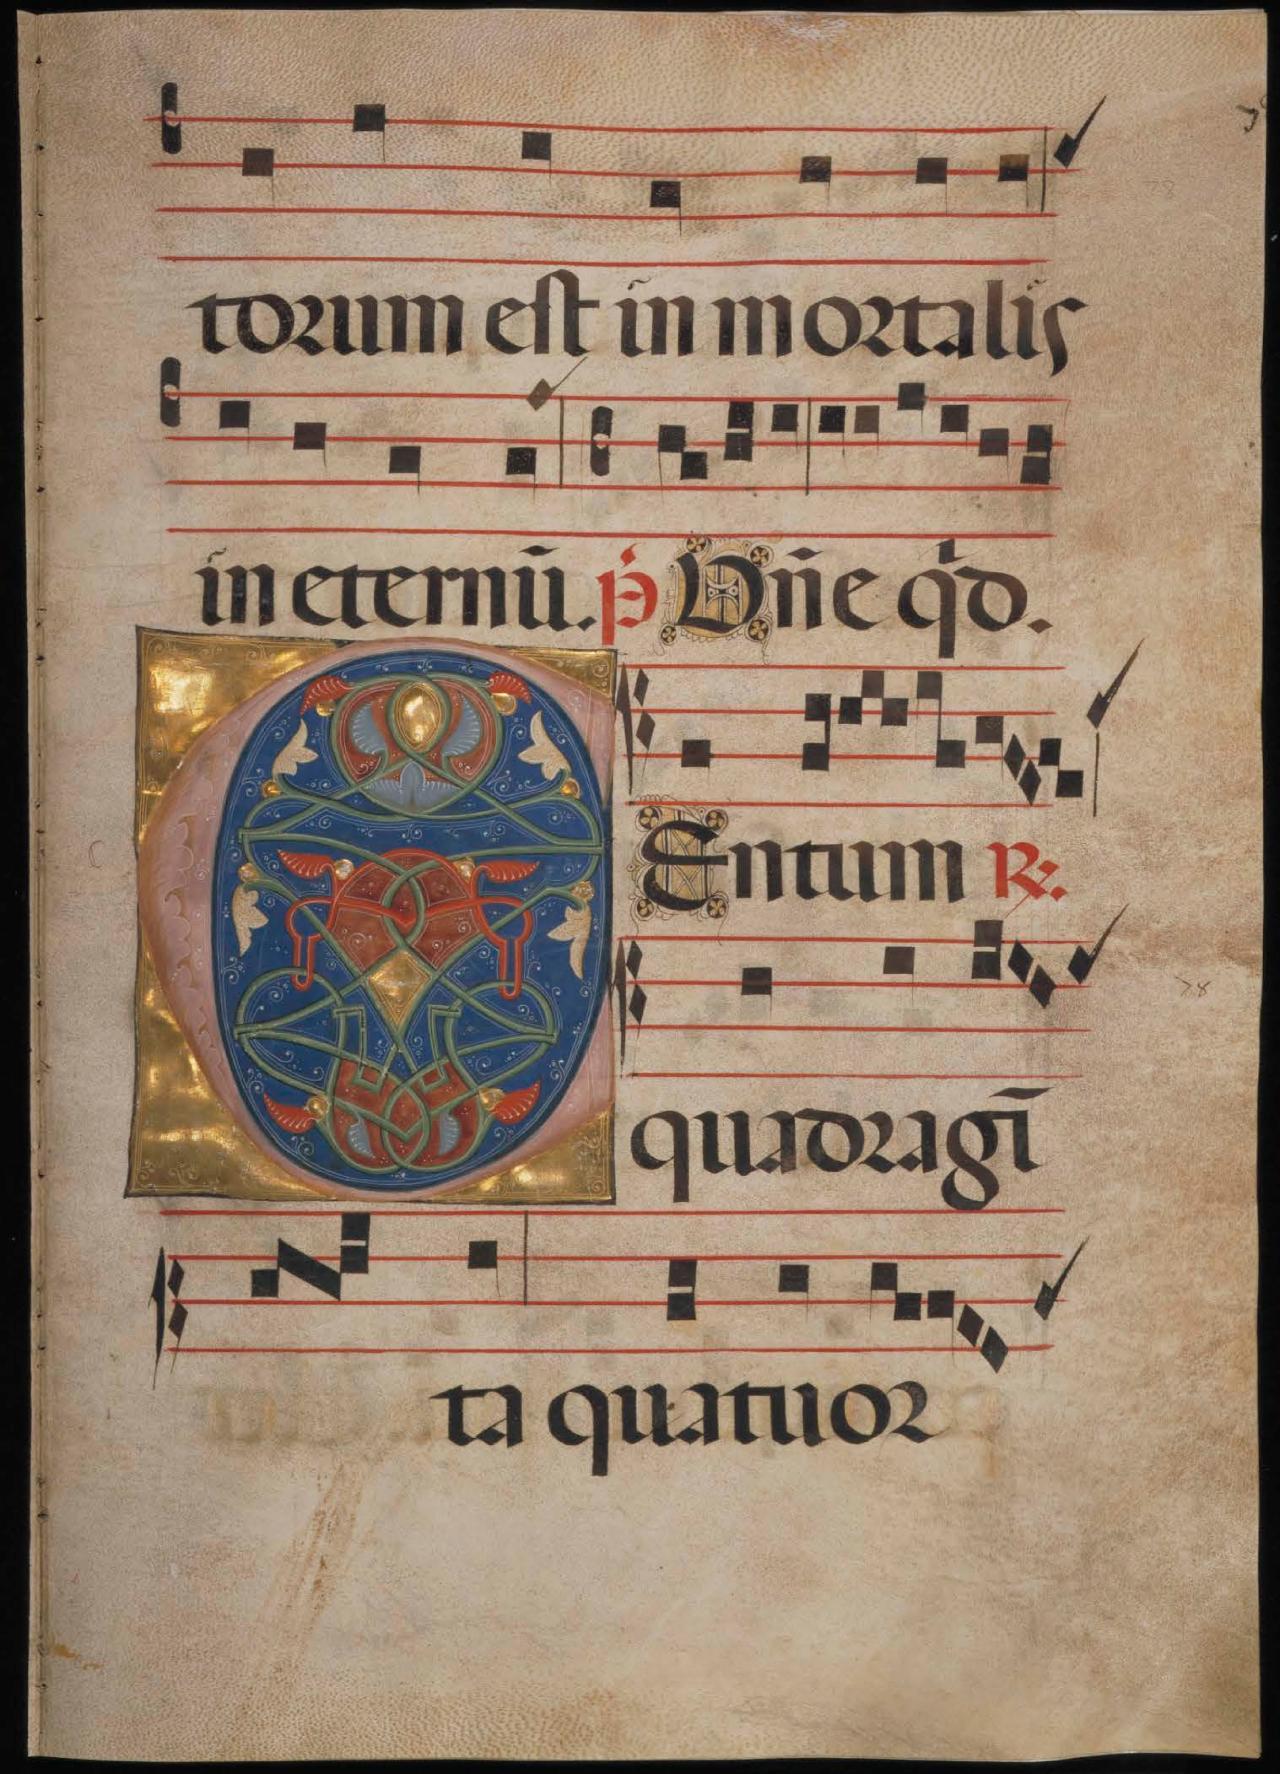 torum est in mortalis
in eternū. p̄ Dn̄e q̄d.
Entum ℟.
quadragī
ta quatuor
78